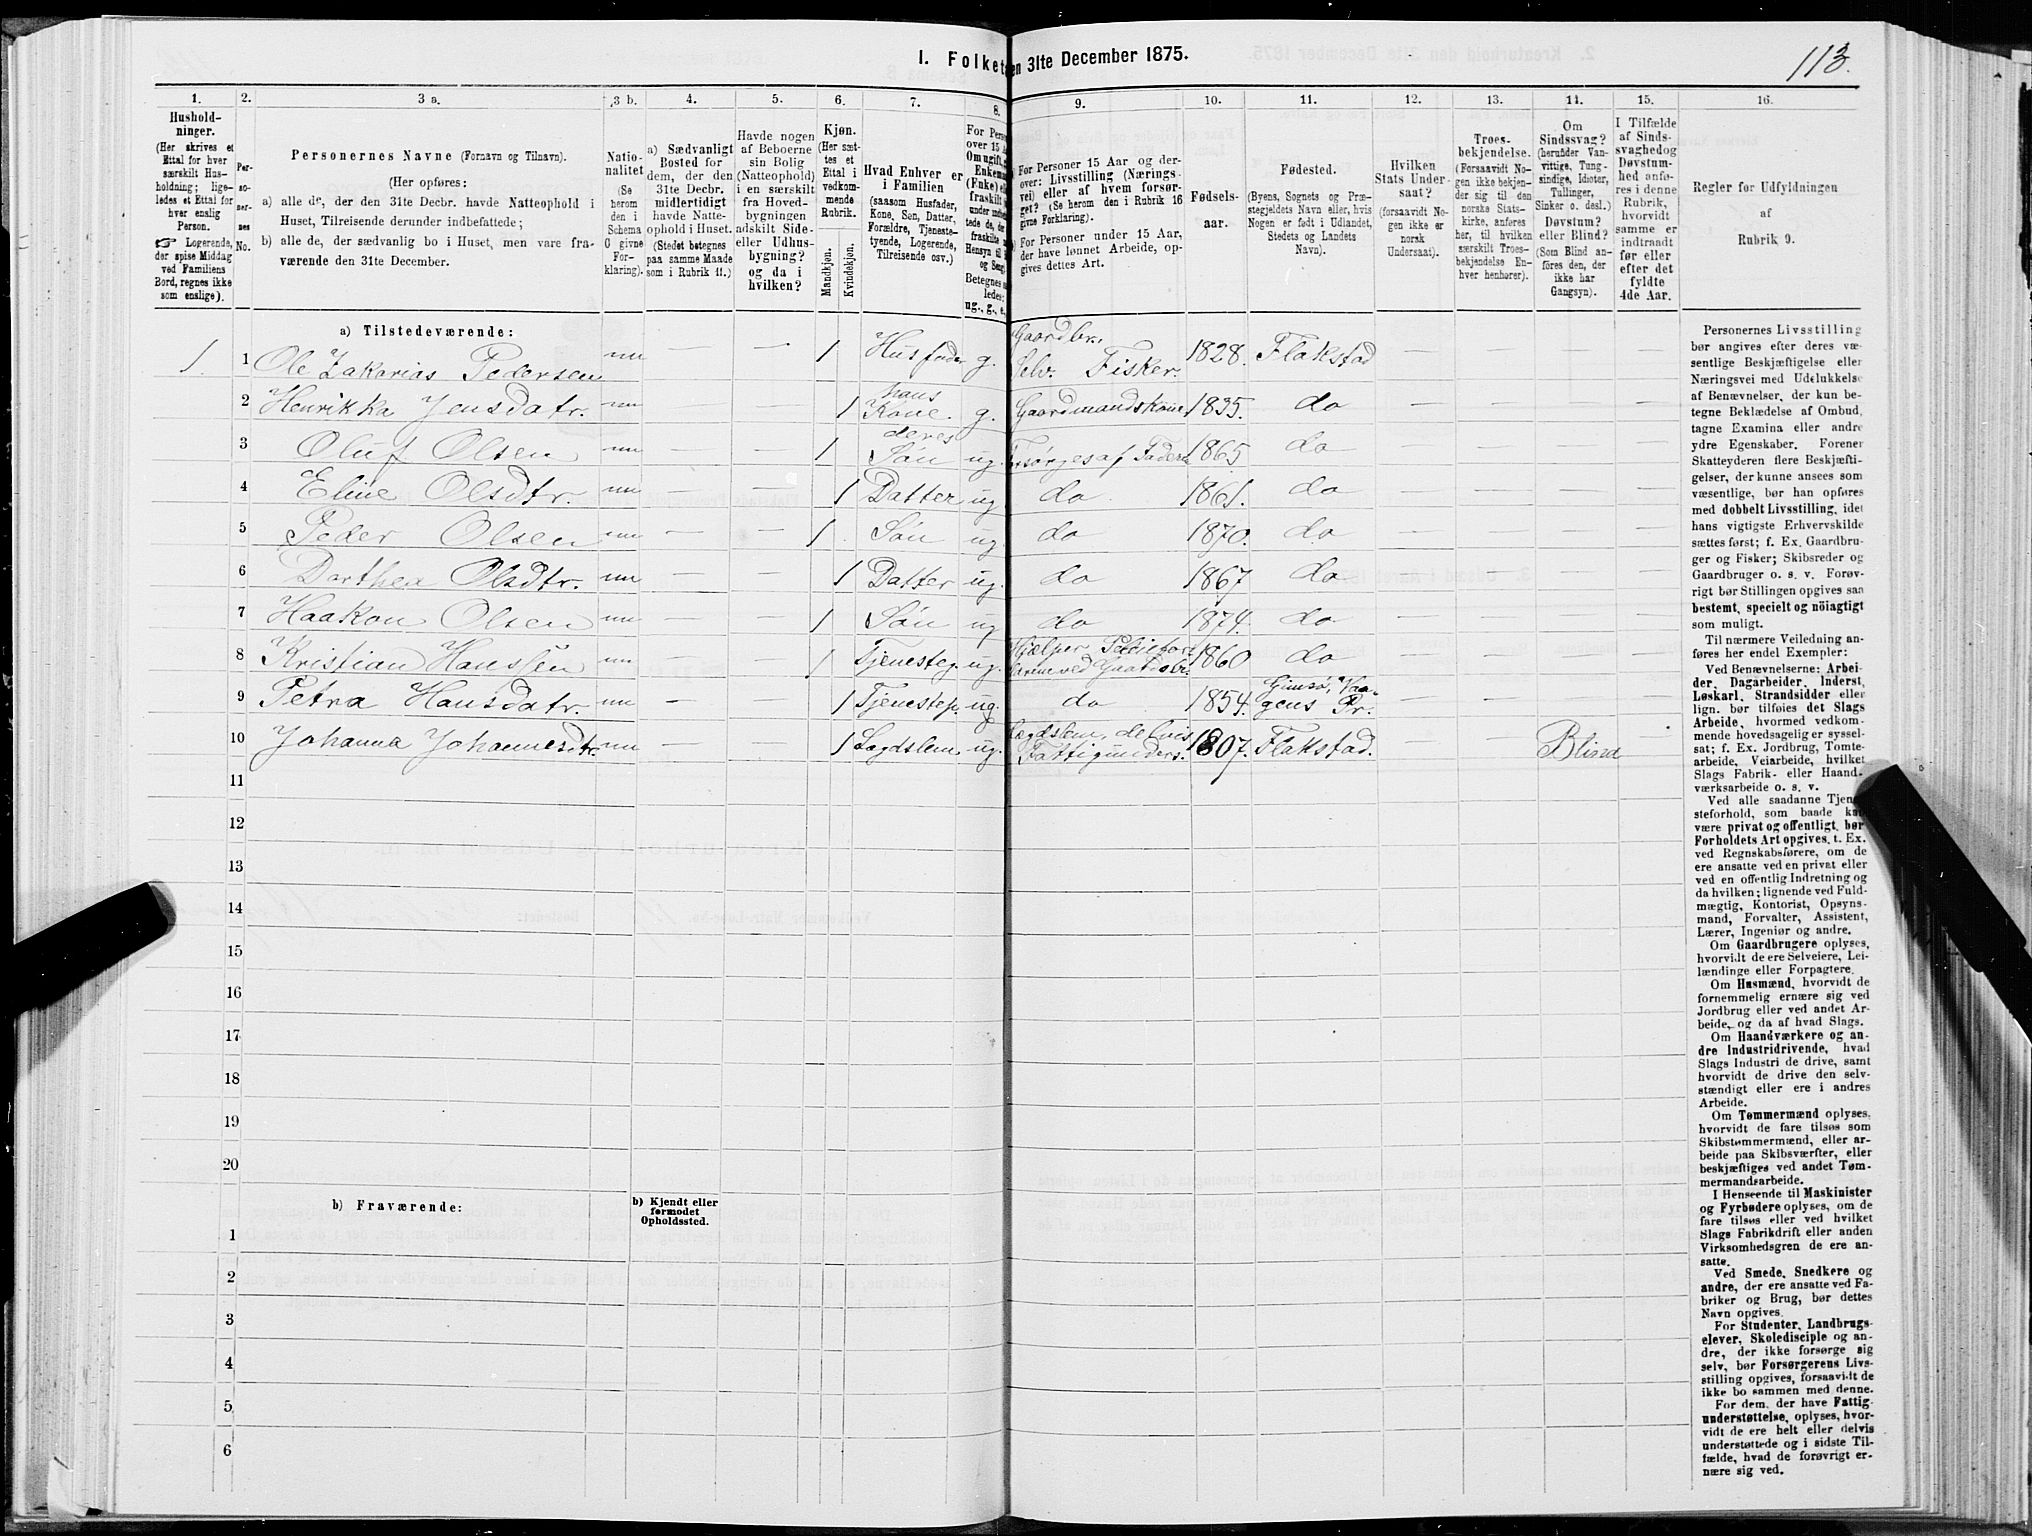 113.
I. Folket
en 31te December 1875.
1. 2. 3 a. 3 b. 4. 5. 6. 7. 8. 9. 10. 11. 12. 13. 14. 15. 16.
Hushold-
ninger.
(Her skrives et
Ettal for hver
særskilt Hus-
holdning; lige-
ledes et Ettal for
hver enslig
Person.
☞ Logerende,
der spise Middag
ved Familiens
Bord, regnes ikke
som enslige).
Per-
so-
ner-
nes
No.
Personernes Navne (Fornavn og Tilnavn).
(Her opføres:
a) alle de, der den 31te Decbr. havde Natteophold i
Huset, Tilreisende derunder indbefattede;
b) alle de, der sædvanlig bo i Huset, men vare fra-
værende den 31te December.
Natio-
nalitet
(Se
herom
den i
Schema
G givne
For-
klaring).
a) Sædvanligt
Bosted for
dem, der den
31te Decbr.
midlertidigt
havde Natte-
ophold i Huset.
(Stedet betegnes
paa samme Maade
som i Rubrik 11.)
Havde nogen
af Beboerne
sin Bolig
(Natteophold)
i en særskilt
fra Hoved-
bygningen
adskilt Side-
eller Udhus-
bygning?
og da i
hvilken?
Kjøn.
(Her sæt-
tes et
Ettal i
vedkom-
mende
Rubrik.
Mandkjøn.
Kvindekjøn.
Hvad Enhver er
i Familien
(saasom Husfader,
Kone, Søn, Datter,
Forældre, Tjeneste-
tyende, Logerende,
Tilreisende osv.)
For Pers
over 15 A
Omugift,
Enkema
(Enke) el
fraskilt
under indbe
tede de, for
fraskilte
Hensyn til
og Seng
Betegnes s
ledes:
ug., g., e.
For Personer 15 Aar og der-
over: Livsstilling (Nærings-
vei) eller af hvem forsør-
get? (Se herom den i Rubrik 16
givne Forklaring).
For Personer under 15 Aar,
der have lønnet Arbeide, op-
gives dettes Art.
Fødsels-
aar.
Fødested.
(Byens, Sognets og Præ-
stegjeldets Navn eller, hvis
Nogen er født i Udlandet,
Stedets og Landets
Navn).
Hvilken
Stats Under-
saat?
(forsaavidt No-
gen ikke er
norsk
Undersaat).
Troes-
bekjendelse.
(Forsaavidt No-
gen ikke bekjen-
der sig til den
norske Stats-
kirke, anføres
her, til hvilken
særskilt Troes-
bekjendelse En-
hver henhører).
Om
Sindssvag?
(herunder Van-
vittige, Tung-
sindige, Idioter,
Tullinger,
Sinker o. desl.)
Døvstum?
eller Blind?
(Som Blind an-
føres den, der
ikke har
Gangsyn).
I Tilfælde
af Sinds-
svaghed og
Døvstum-
hed anfø-
res i denne
Rubrik,
hvorvidt
samme er
indtraadt
før eller
efter det
fyldte
4de Aar.
Regler for Udfyldningen
af
Rubrik 9.
a) Tilstedeværende:
1 1 Ole Zakarias Pedersen nn — — 1 Husfader g. Gaardbr. Selv. Fisker. 1828. Flakstad — — — —
2 Henrikka Jensdatr. nn — — 1 hans Kone. g. Gaardmandskone 1835. do — — — —
3 Oluf Olsen nn — — 1 deres Søn ug. Forsørges af Faderen 1865 do — — — —
4 Eline Olsdtr. nn — — 1 Datter ug do 1861. do — — — —
5 Peder Olsen nn — — 1 Søn ug. do 1870. do — — — —
6 Dorthea Olsdtr. nn — — 1 Datter ug. do 1867 do — — — —
7 Haakon Olsen nn — — 1 Søn ug do 1874. do — — — —
8 Kristian Hanssen nn — — 1 Tjenesteg. ug. Hjælper ved Gaardsbr. 1860 do — — — —
9 Petra Hansdatr. nn — — 1 Tjenestep. ug. do 1854. Gimsø, Vaagens Pr. — — — —
10 Johanna Johannesdtr. nn — — 1 Lægdslem ug. Lægdslem, delvis Fattigunders. 1807. Flakstad. — — Blind
11
12
13
14
15
16
17
18
19
20
b) Fraværende:
b) Kjendt eller
formodet
Opholdssted.
1
2
3
4
5
6
Personernes Livsstilling
bør angives efter deres væ-
sentlige Beskjæftigelse eller
Næringsvei med Udelukkelse
af Benævnelser, der kun be-
tegne Beklædelse af Ombud,
tagne Examina eller andre
ydre Egenskaber. Forener
Skatteyderen flere Beskjæfti-
gelser, der kunne ansees som
væsentlige, bør han opføres
med dobbelt Livsstilling, idet
hans vigtigste Erhvervskilde
sættes først; f. Ex. Gaardbru-
ger og Fisker; Skibsreder og
Gaardbruger o. s. v. Forøv-
rigt bør Stillingen opgives saa
bestemt, specielt og nöiagtigt
som muligt.
Til nærmere Veiledning an-
føres her endel Exempler:
Ved Benævnelserne: Arbei-
der, Dagarbeider, Inderst,
Løskarl, Strandsidder eller
lign. bør tilføies det Slags
Arbeide, hvormed vedkom-
mende hovedsagelig er syssel-
sat; f. Ex. Jordbrug, Tomte-
arbeide, Veiarbeide, hvilket
Slags Fabrik- eller Haand-
værksarbeide o. s. v.
Ved alle saadanne Tjene-
steforhold, som baade kan
være privat og offentligt, bør
Forholdets Art opgives, t. Ex.
ved Regnskabsførere, om de
ere ansatte ved en privat eller
ved en offentlig Indretning og
da hvilken; lignende ved Fuld-
mægtig, Kontorist, Opsyns-
mand, Forvalter, Assistent,
Lærer, Ingeniør og andre.
Om Gaardbrugere oplyses,
hvorvidt de ere Selveiere, Lei-
lændinge eller Forpagtere.
Om Husmænd, hvorvidt de
fornemmelig ernære sig ved
Jordbrug eller ved andet Ar-
beide, og da af hvad Slags.
Om Haandværkere og an-
dre Industridrivende, hvad
Slags Industri de drive, samt
hvorvidt de drive den selv-
stændigt eller ere i andres
Arbeide.
Om Tømmermænd oplyses,
hvorvidt de fare tilsøs som
Skibstømmermænd, eller ar-
beide paa Skibsværfter, eller
beskjæftiges ved andet Tøm-
mermandsarbeide.
I Henseende til Maskinister
og Fyrbødere oplyses, om de
fare tilsøs eller ved hvilket
Slags Fabrikdrift eller anden
Virksomhedsgren de ere an-
satte.
Ved Smede, Snedkere og
andre, der ere ansatte ved Fa-
briker og Brug, bør dettes
Navn opgives.
For Studenter, Landbrugs-
elever, Skoledisciple og an-
dre, der ikke forsørge sig
selv, bør Forsørgerens Livs-
stilling opgives, forsaavidt de
ikke bo sammen med denne.
For dem, der have Fattig-
understøttelse, oplyses, hvor-
vidt de ere helt eller delvis
understøttede og i sidste Til-
fælde, hvad de forøvrigt er-
nære sig ved.